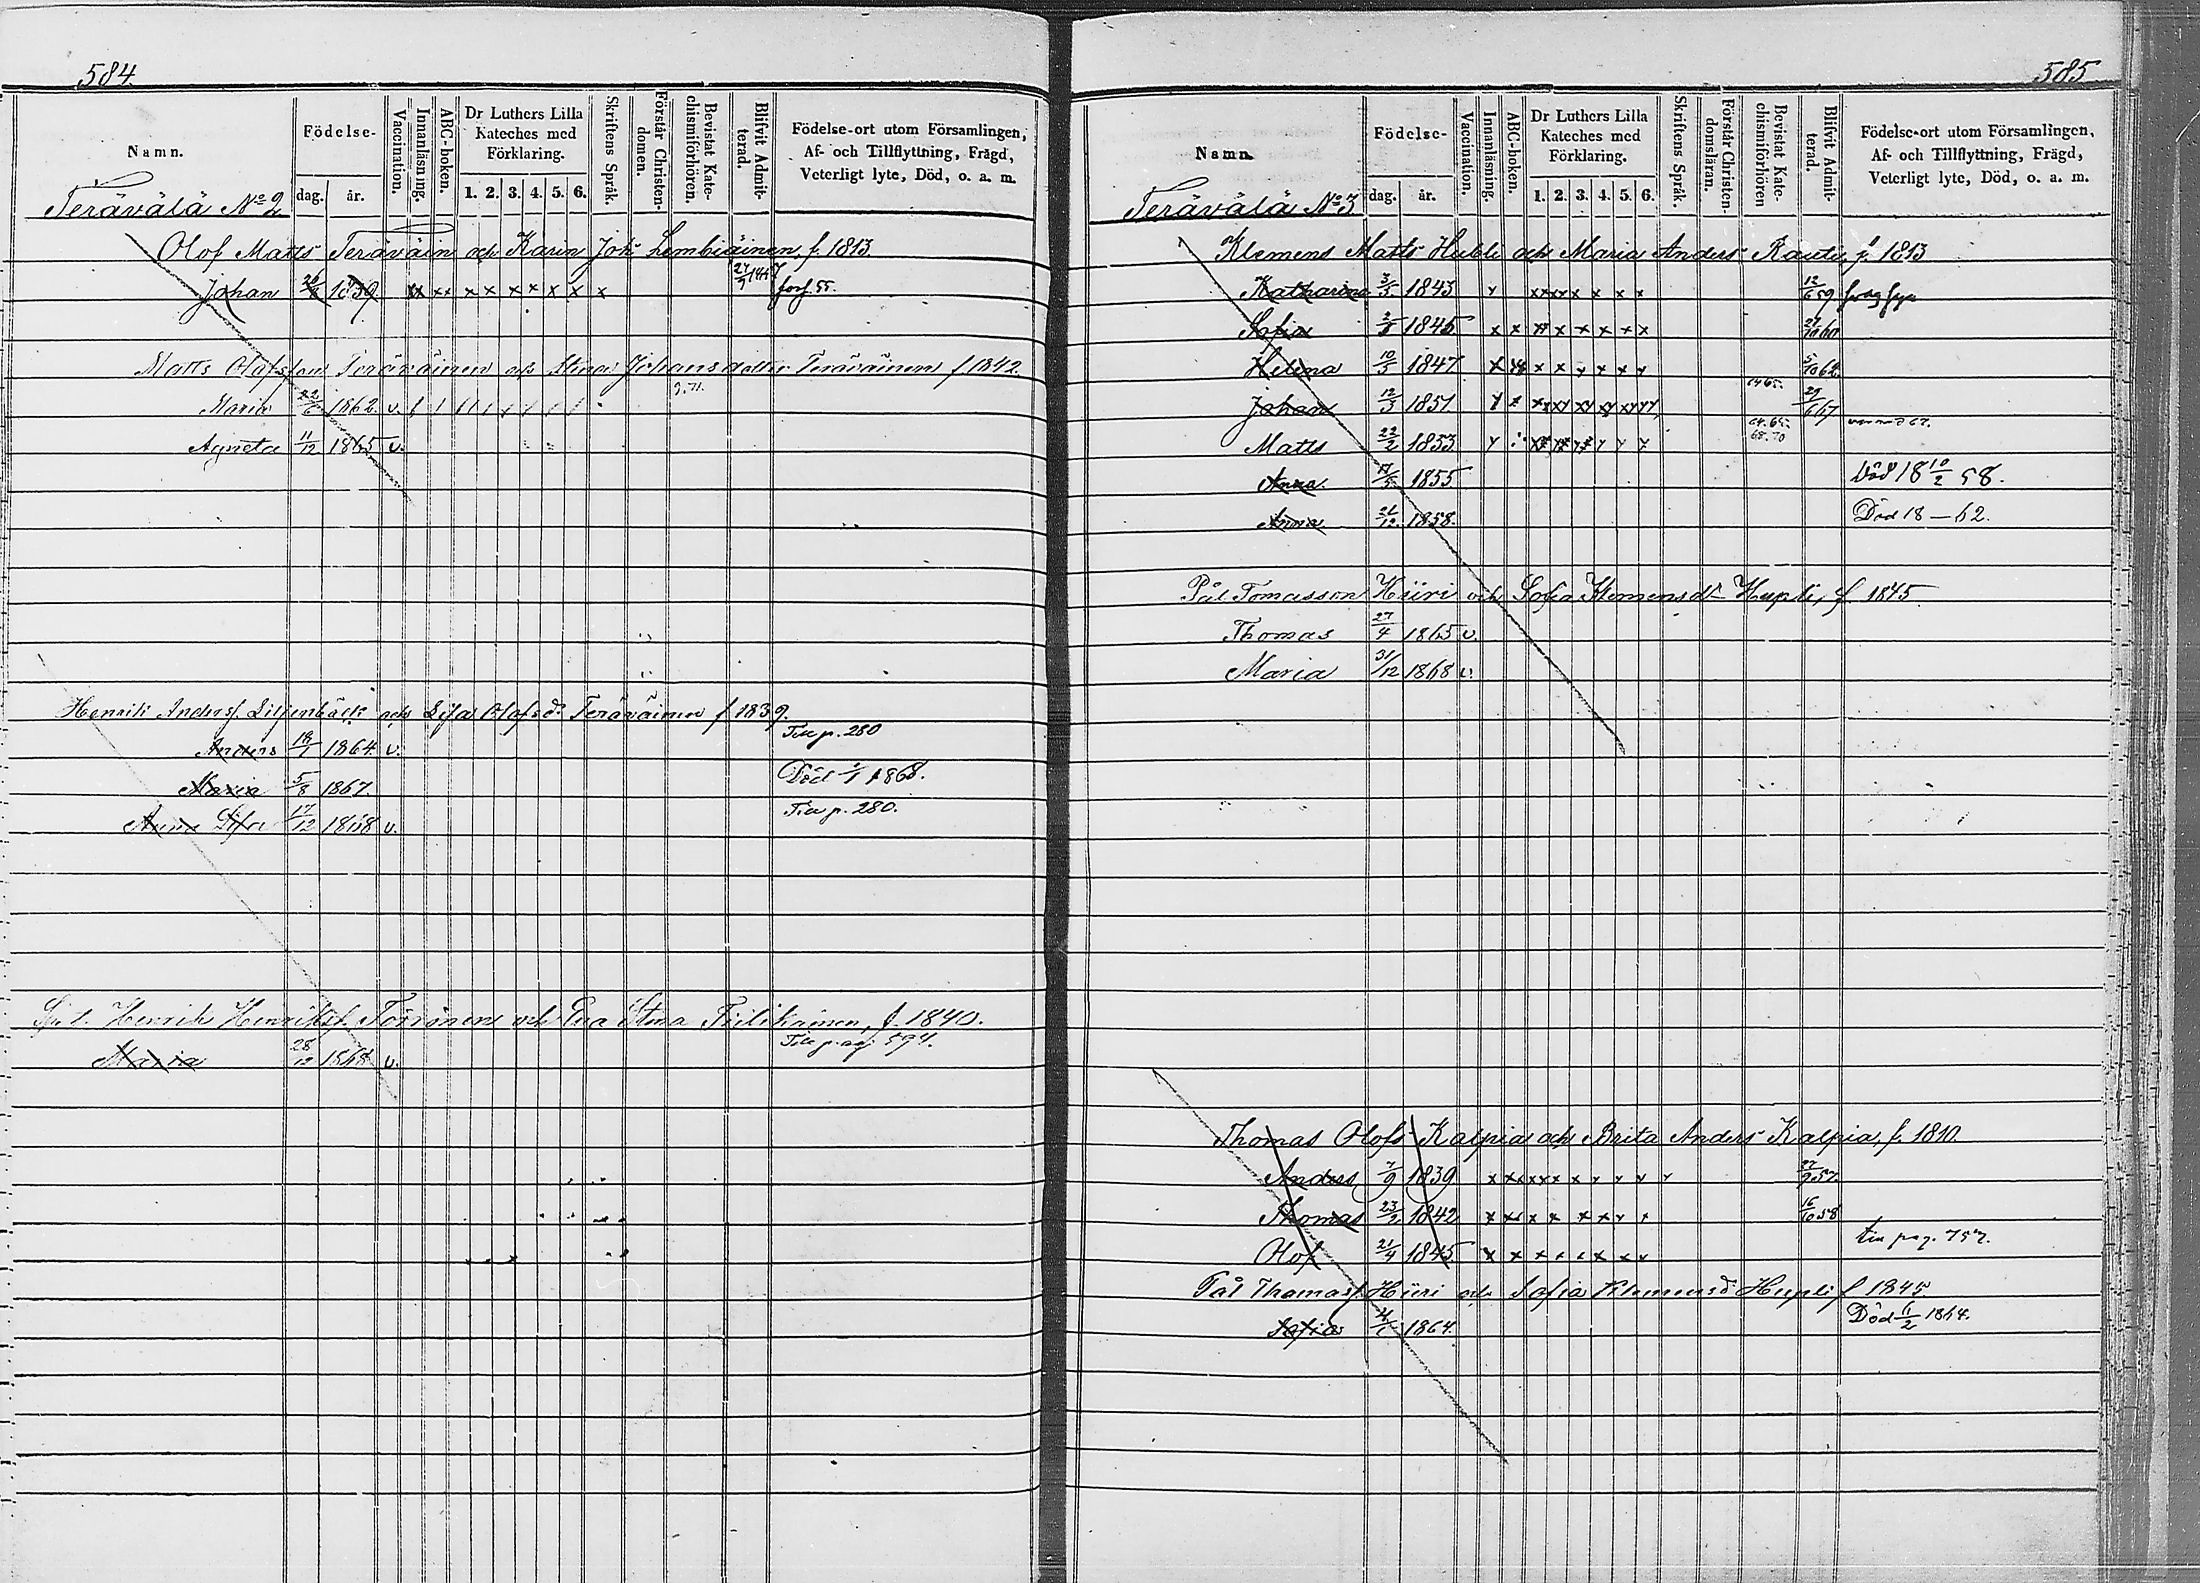 584.
Namn.
Födelse-
dag. år.
Vaccination.
Innanläsning.
ABC-boken.
Dr Luthers Lilla Kateches med Förklaring.
1. 2. 3. 4. 5. 6.
Skriftens Språk.
Förstår Christen-domen.
Bevistat Kate-chismiförhören.
Blifvit Admit-terad.
Födelse-ort utom Församlingen, Af- och Tillflyttning, Frägd, Veterligt lyte, Död, o. a. m.
Terävälä No 2
Olof Matts Teräväin och Karin Joh. Lembiäinen, f. 1813.
Johan 1839 x x x x x x x
Matts Olofsson Teräväinen och Stina Johansdotter Teräväinen f 1842.
9. 71.
Maria 22/6 1862. v.
Agneta 11/12 1865 v.
Henrik Andersf. Liljenbäck och Lisa Olofsd. Teräväinen f 1839.
Anders 18/1 1864. v. Til p. 280
Maria 5/8 1867. Död 1/1 1868.
Anna Lisa 17/12 1868 v. Til p. 280.
Henrik Henriksf. Törrönen och Eva Stina Tiilikainen, f. 1840.
Maria 28/12 1868 v. Til pag. 594.
585
Namn.
Födelse-
dag. år.
Vaccination.
Innanläsning.
ABC-boken.
Dr Luthers Lilla Kateches med Förklaring.
1. 2. 3. 4. 5. 6.
Skriftens Språk.
Förstår Christen-domsläran.
Bevistat Kate-chismiförhören
Blifvit Admit-terad.
Födelse-ort utom Församlingen, Af- och Tillflyttning, Frägd, Veterligt lyte, Död, o. a. m.
Terävälä No 3
Klemens Matts Hubli och Maria Anders Rautia, f. 1813
Katharina 3/3 1843 x x x x x x 12/6 59
Sofia 1845 x x x x x x x x
Helena 10/3 1847 x x x x x x x 5/10 62.
Johan 12/3 1851 29/6 67
Matts 22/2 1853 64. 65. 68. 70
Anna 1855 Död 18 10/2 58.
Anna 21/12 1858. Död 18 — 62.
Pål Tomasson Hüri och Sofia Klemensd. Hupli, f. 1845
Thomas 27/4 1865 v.
Maria 31/12 1868 v.
Thomas Olofs Kalpia och Brita Anders Kalpia, f. 1810
Anders 7/9 1839 x x x x x x x 27/9 57
Thomas 23/2 1842 x x x x x x x 16/10 58
Olof 21/4 1845 x x x x x x x x till pag. 757.
Pål Thomasf. Hüri och Sofia Klemensd. Hupli f 1845
Sofia 1864. Död 11/2 1864.